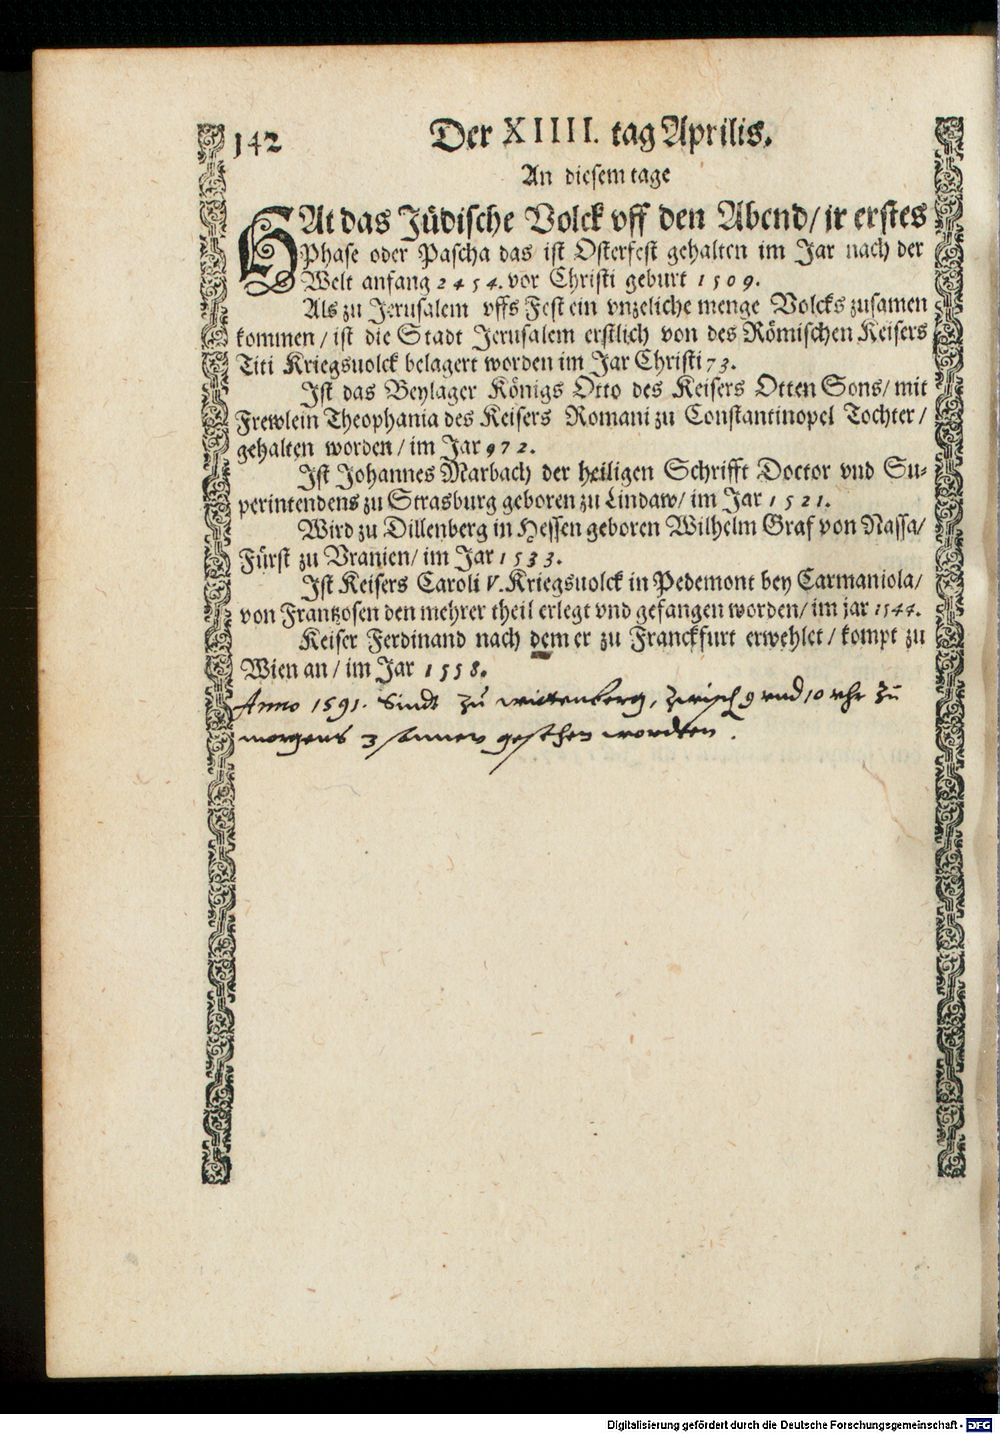 142
Der XIIII. tag Aprilis.
An diesem tage
HAt das Jüdische Volck vff den Abend/ ir erstes
Phase oder Pascha das ist Osterfest gehalten im Jar nach der
Welt anfang 2454. vor Christi geburt 1509.
Als zu Jerusalem vffs Fest ein vnzeliche menge Volcks zusamen
kommen/ ist die Stadt Jerusalem erstlich von des Römischen Keisers
Titi Kriegsuolck belagert worden im Jar Christi 73.
Ist das Beylager Königs Otto des Keisers Otten Sons/ mit
Frewlein Theophania des Keisers Romani zu Constantinopel Tochter/
gehalten worden/ im Jar 972.
Ist Johannes Marbach der heiligen Schrifft Doctor vnd Su-
perintendens zu Strasburg geboren zu Lindaw/ im Jar 1521.
Wird zu Dillenberg in Hessen geboren Wilhelm Graf von Nassa/
Fürst zu Vranien/ im Jar 1533.
Ist Keisers Caroli V. Kriegsuolck in Pedemont bey Carmaniola/
von Frantzosen den mehrer theil erlegt vnd gefangen worden/ im jar 1544.
Keiser Ferdinand nach dem er zu Franckfurt erwehlet/ kompt zu
Wien an/ im Jar 1558.
Anno 1591. Sindt zu wittenberg, zwisch 9 vnd 10 vhr zu
morgens 3 sonnen gesehen wordten.
Digitalisierung gefördert durch die Deutsche Forschungsgemeinschaft - DFG